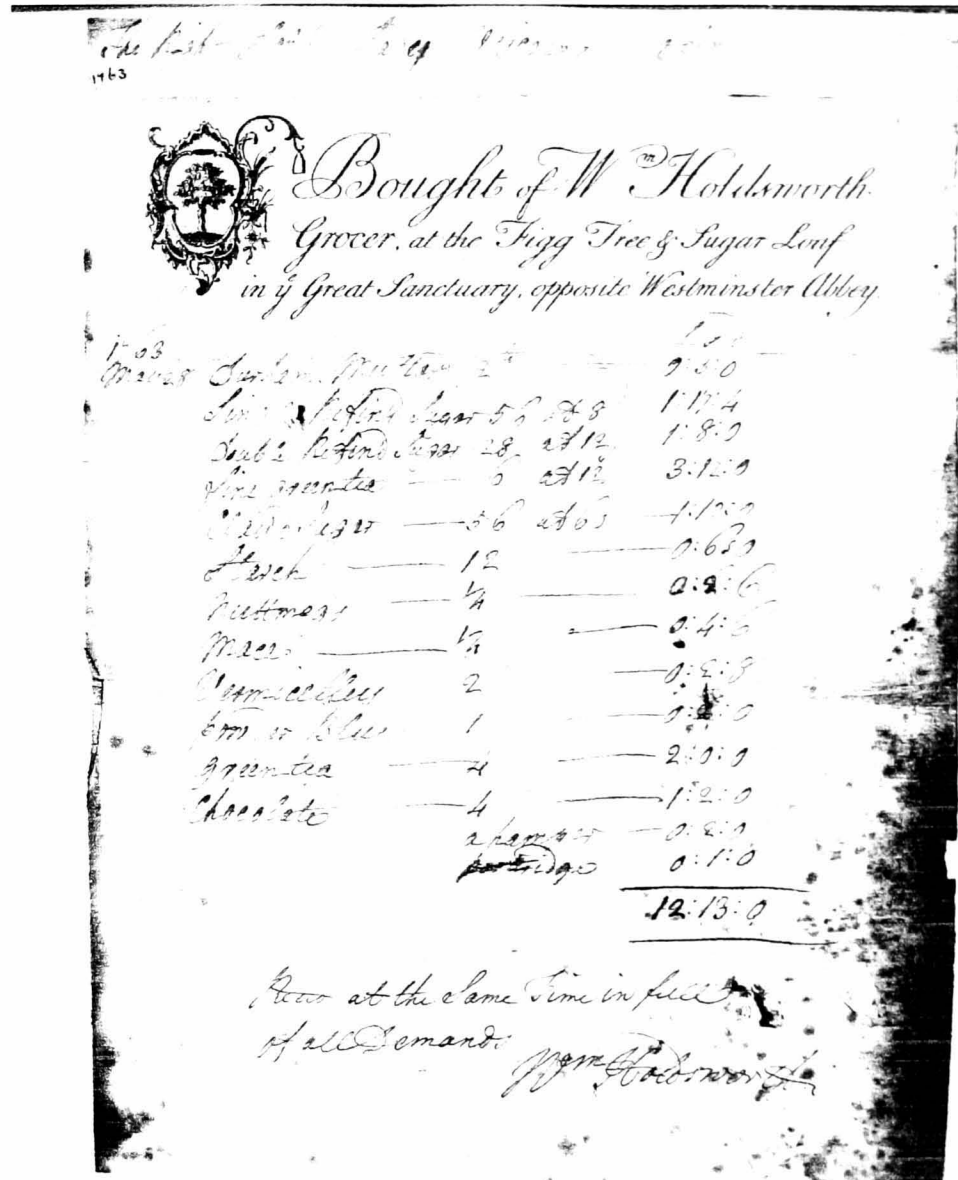 The
1763
Bought of Wm Holdsworth
Grocer, at the Figg Tree & Sugar Loaf
in ye Great Sanctuary, opposite Westminster Abbey.
1763
Durham Mustard 2lb 0:3:0
Refind Sugar 56 at 8 1:17:4
Double Refind Sugar 28 at 12 1:8:0
fine green tea 6 at 12 3:12:0
56
Starch 12 0:6:0
Nuttmegs 1/4 0:2:6
Mace 0:4:6
Vermicelley 2 0:2:8
powder blue 1
green tea 4 2:0:0
Chocolate 4 1:2:0
a hamper 0:2:0
portridge 0:1:0
12:13:0
at the Same Time in full
of all Demands
Wm Holdsworth